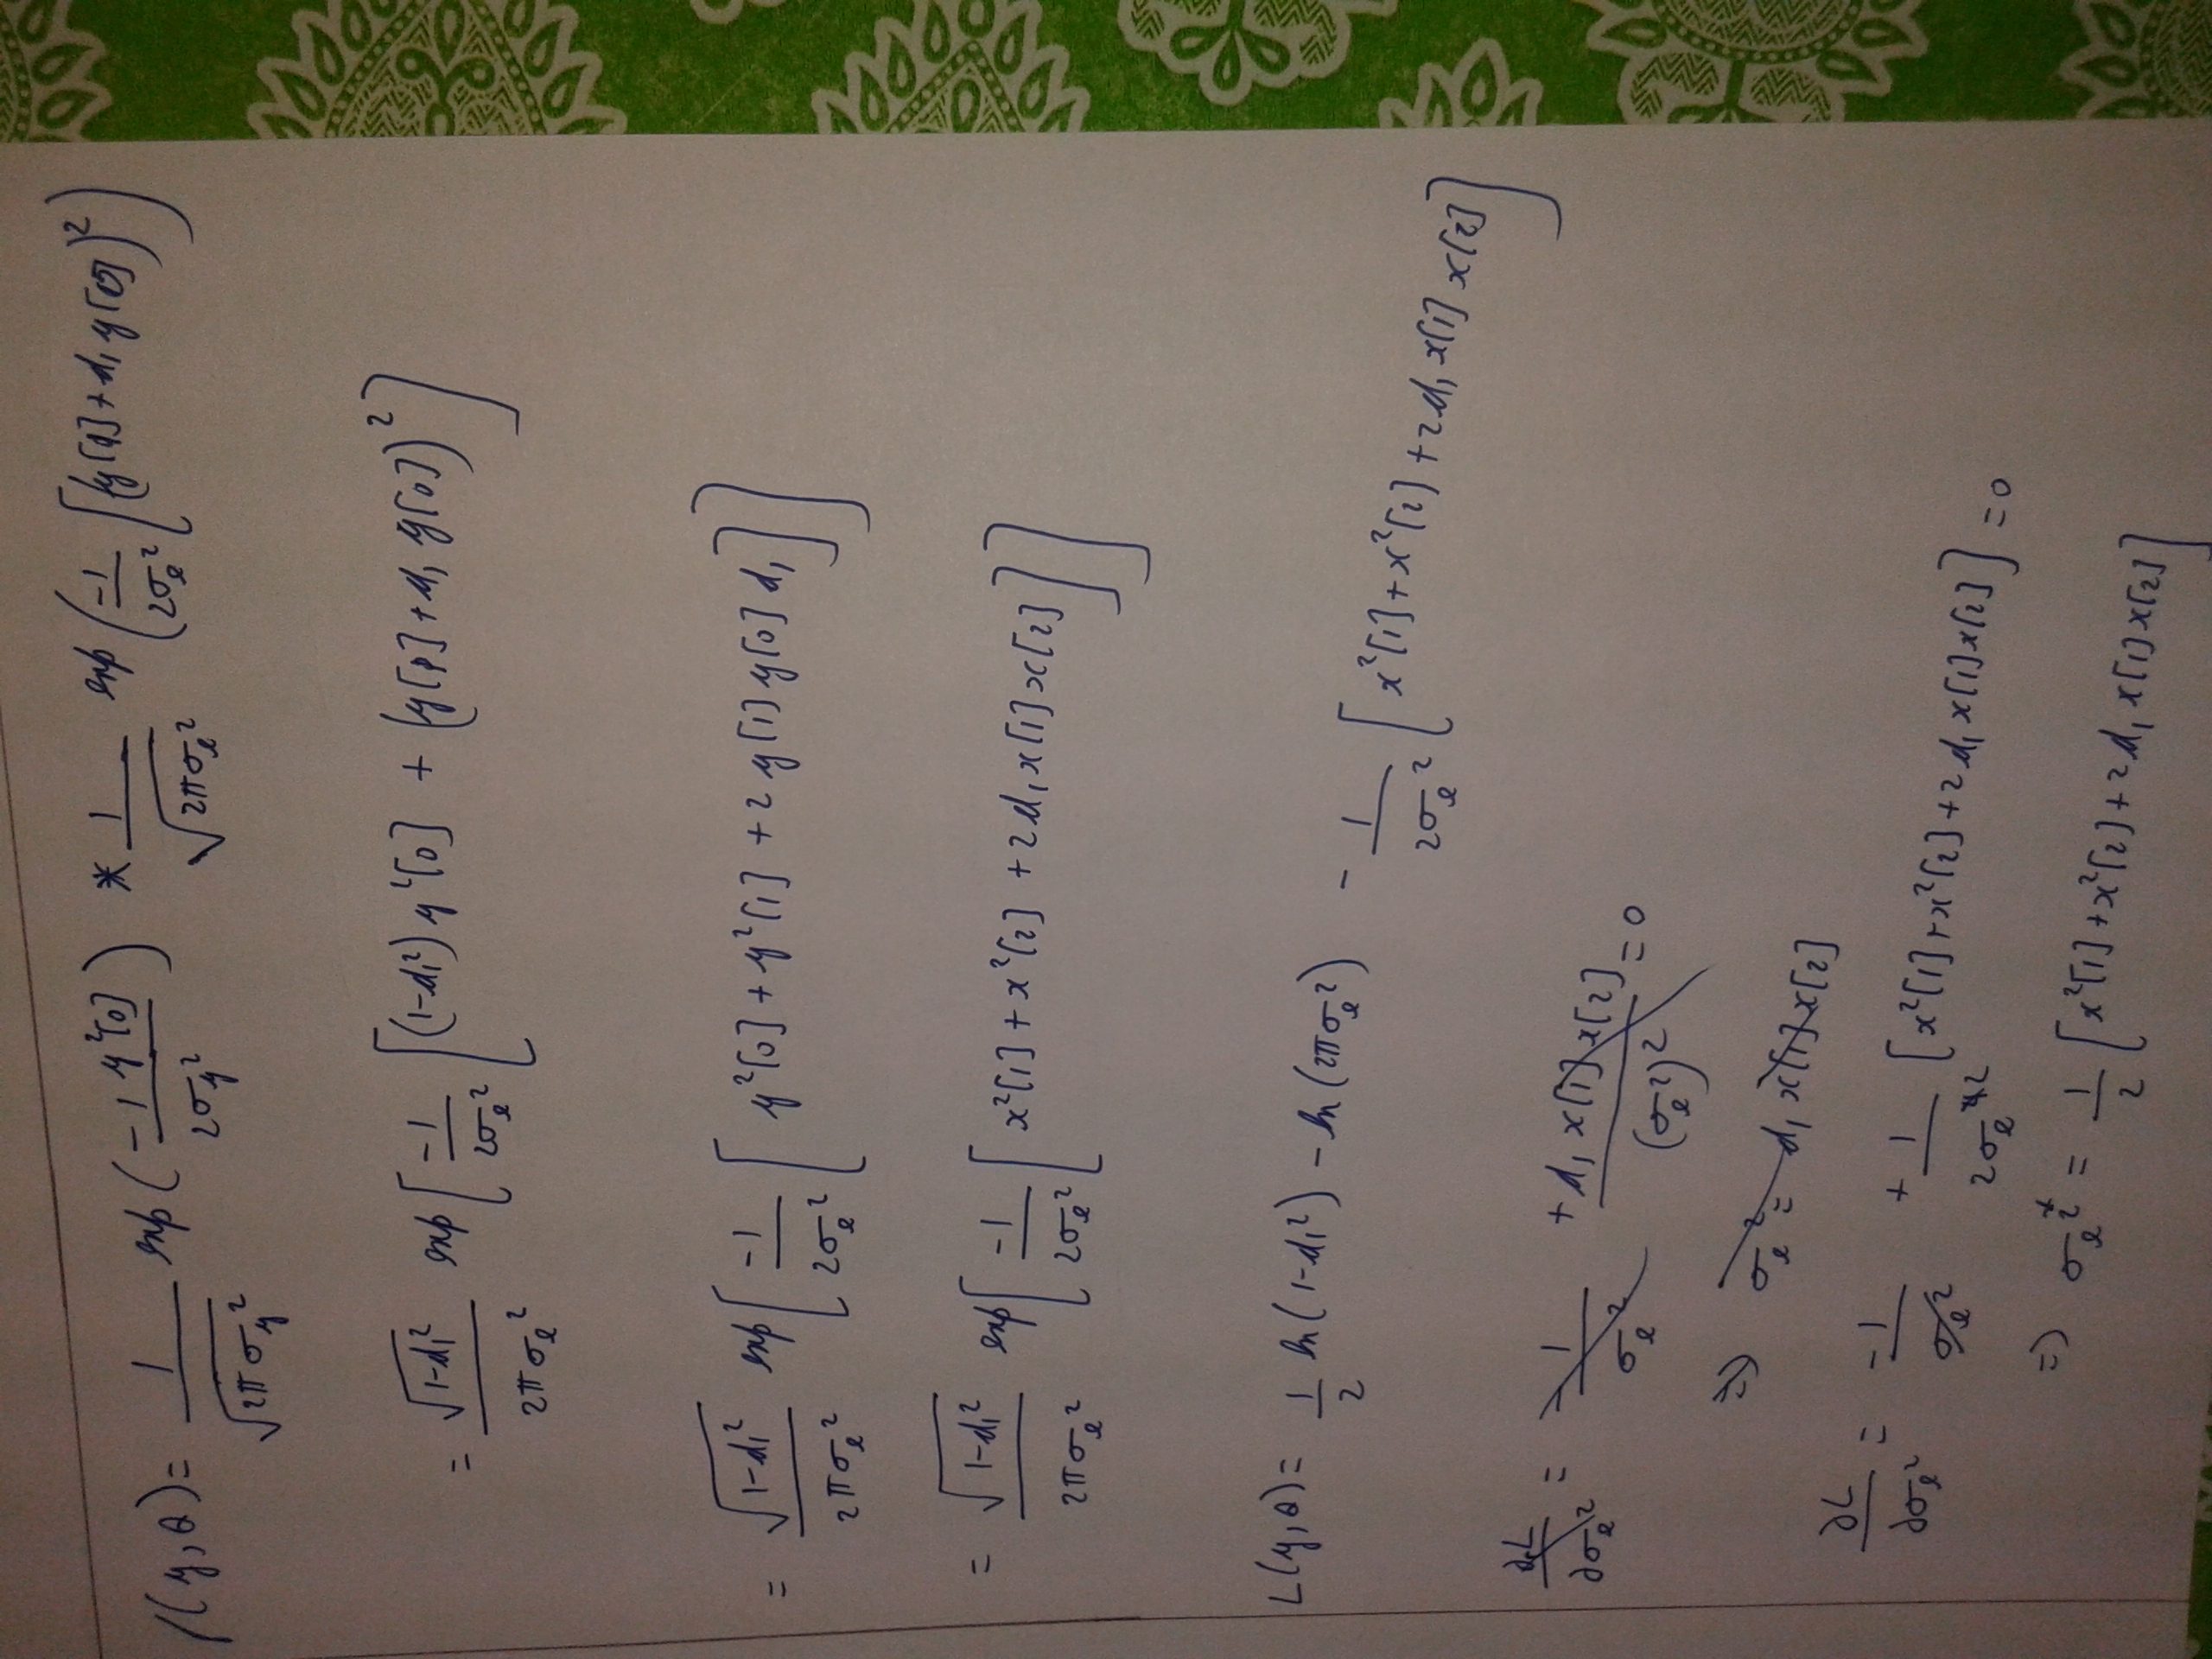 l(y,θ) = 1/√(2πσ_y²) exp(-1 y²[0] / 2σ_y²) * 1/√(2πσ_e²) exp(-1/2σ_e² [(y[1]+a₁y[0])²)
= √(1-a₁²)/2πσ_e² exp[-1/2σ_e² [(1-a₁²)y²[0] + (y[1]+a₁y[0])²]
= √(1-a₁²)/2πσ_e² exp[-1/2σ_e² [y²[0] + y²[1] + 2y[1]y[0]a₁]]
= √(1-a₁²)/2πσ_e² exp[-1/2σ_e² [x²[1] + x²[2] + 2a₁x[1]x[2]]]
L(y,θ) = 1/2 ln(1-a₁²) - ln(2πσ_e²) - 1/2σ_e² [x²[1] + x²[2] + 2a₁x[1]x[2]]
∂L/∂σ_e² = -1/σ_e² + a₁x[1]x[2]/(σ_e²)² = 0
=> σ_e² = a₁x[1]x[2]
∂L/∂σ_e² = -1/σ_e² + 1/2σ_e⁴ [x²[1]+x²[2]+2a₁x[1]x[2]] = 0
=> σ_e²* = 1/2 [x²[1]+x²[2]+2a₁x[1]x[2]]